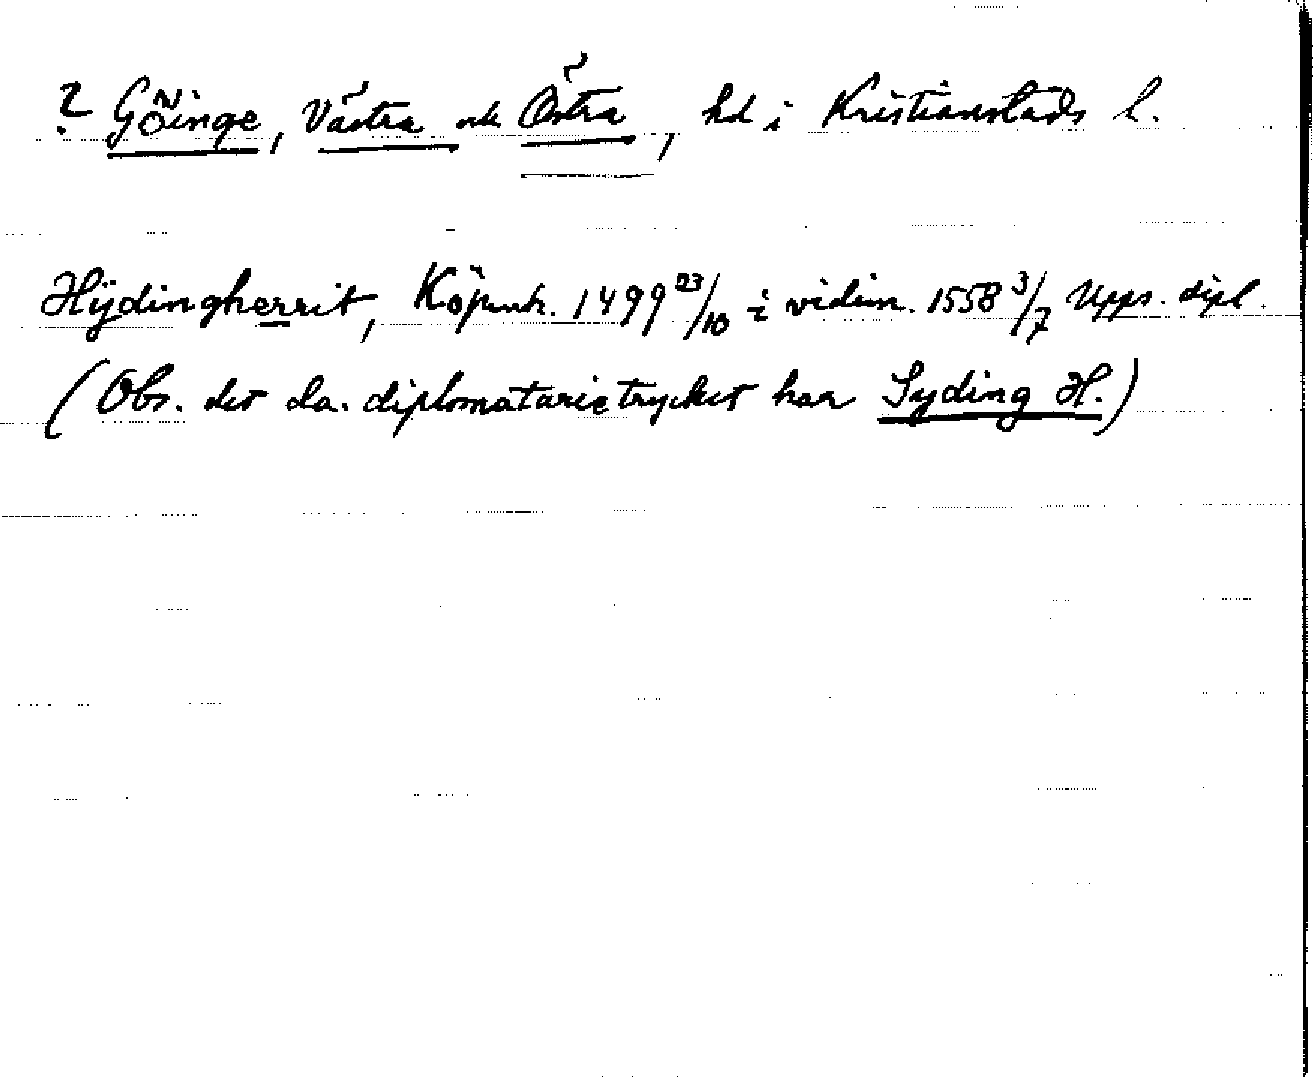 ? Göinge, Västra och Östra, hd i Kristianstads l.
Hÿdingherrit, Köpenh. 1499 23/10 i vidim. 1558 3/7 Upps. dipl.
(Obs. det da. diplomatarietrycket har Syding H.)